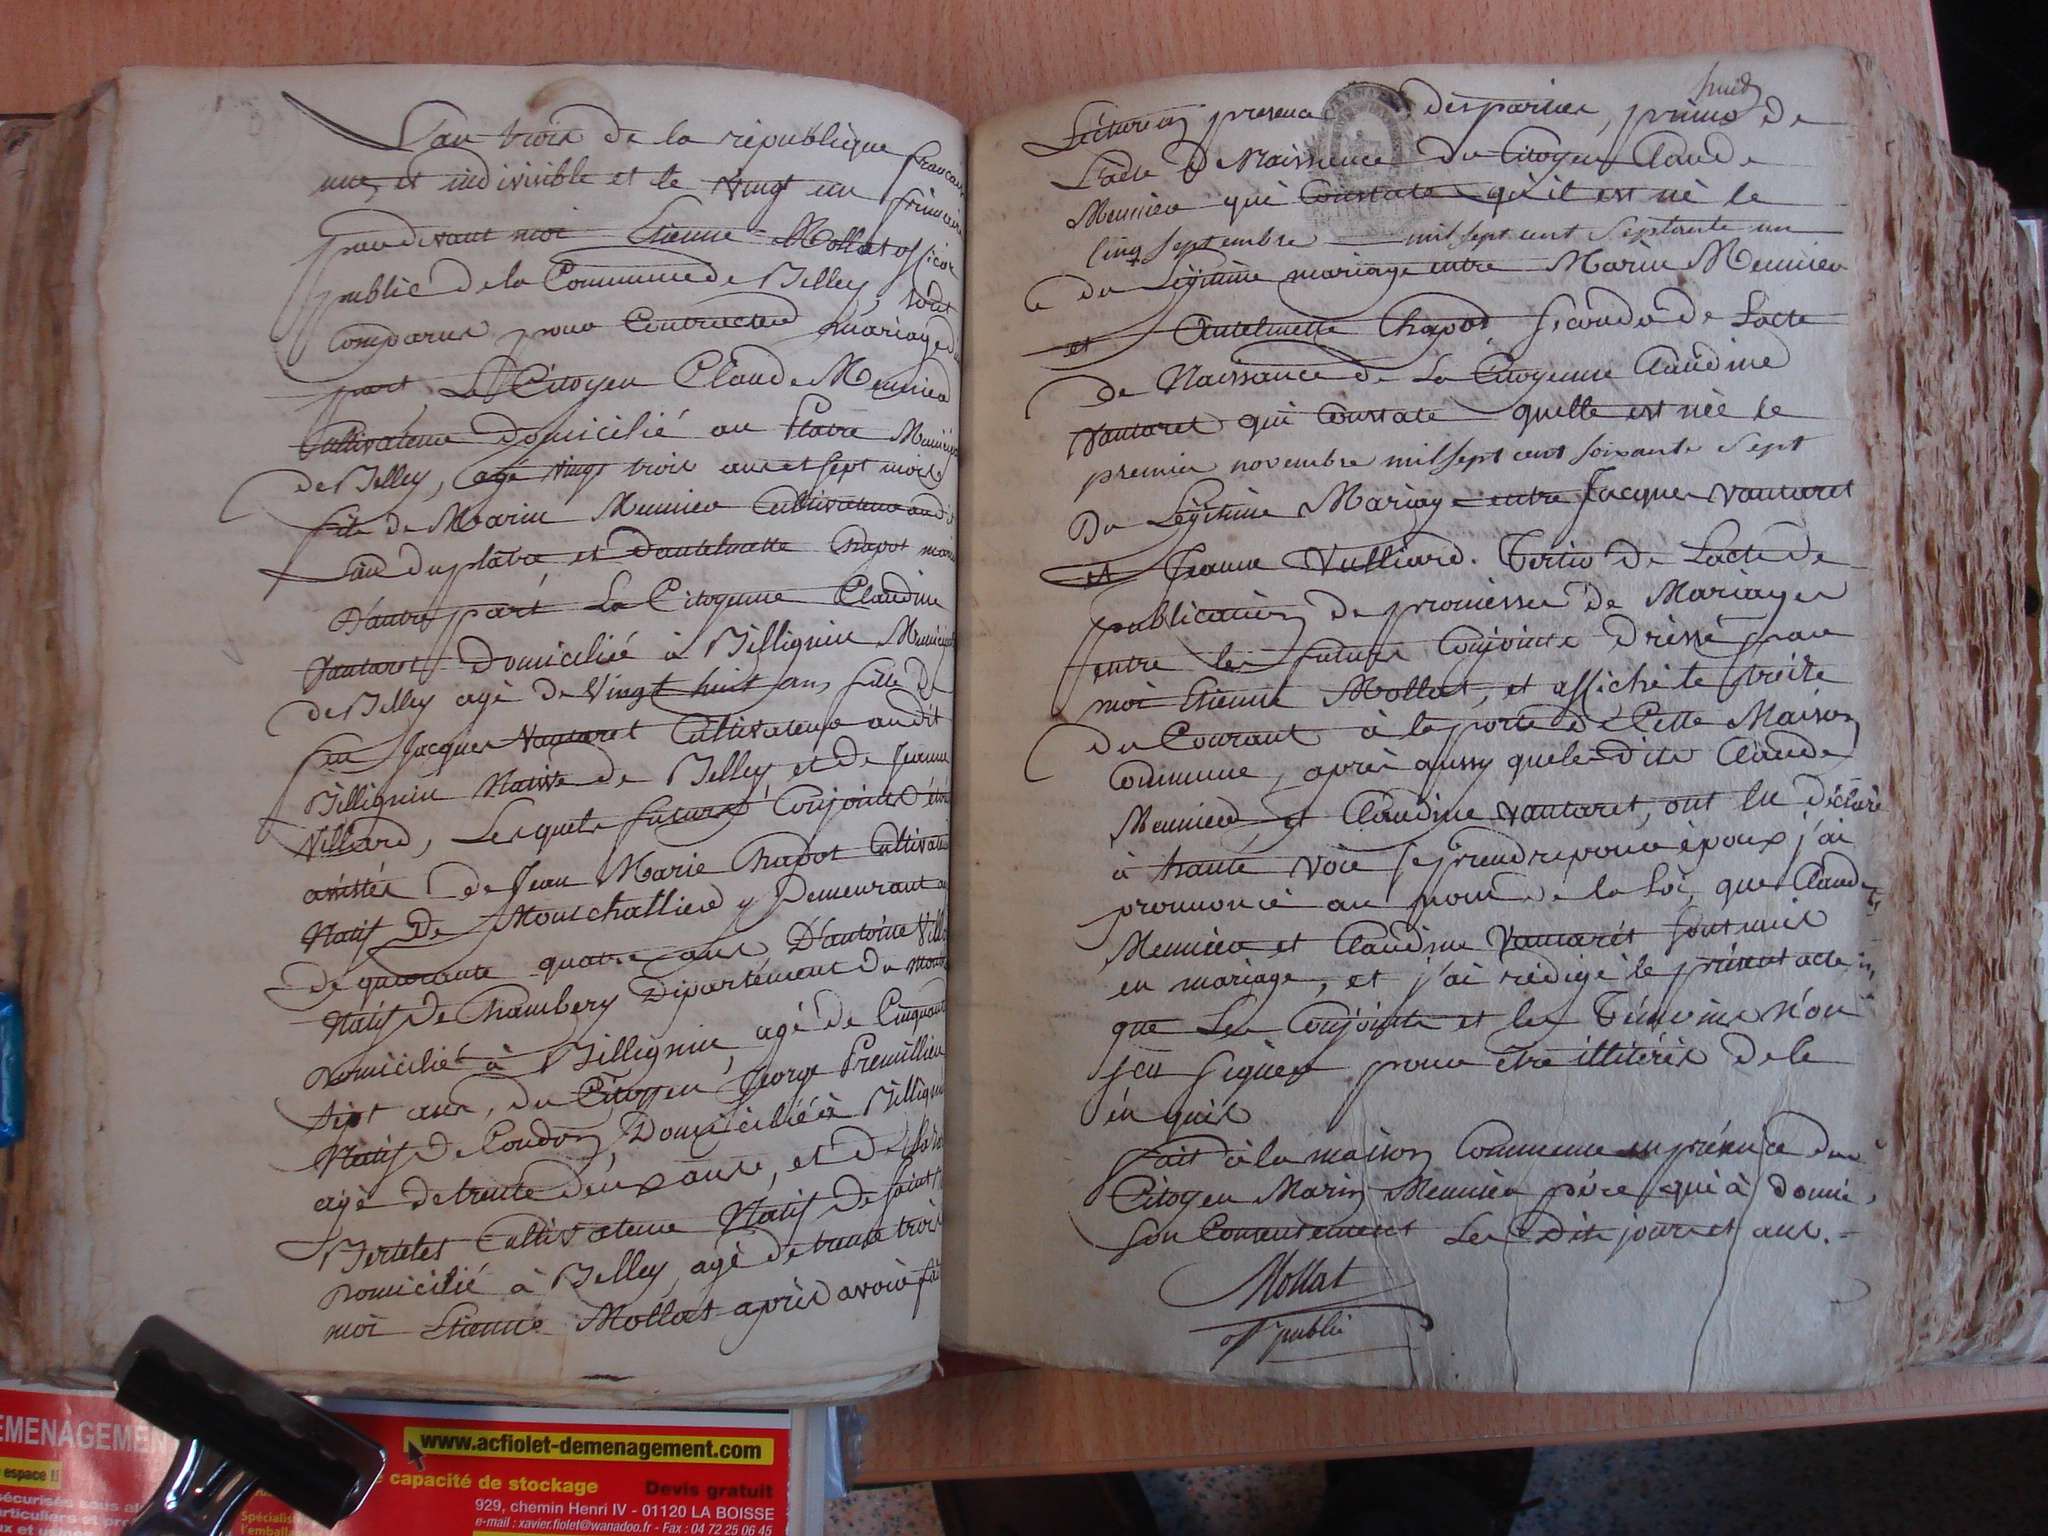 L'an trois de la république française
une, et indivisible et le vingt un frimaire
pardevant moi Etienne Mollat officier
public de la Commune de Belley, sont
comparus pour Contracter mariage d'une
part, Le Citoyen Claude Meunier
Cultivateur domicilié au
de Belley, agé vingt trois ans et sept mois
fils de Marin Meunier Cultivateur audit
lieu du et d'antelmette Chapot mariés
D'autre part La Citoyenne Claudine
Vautaret Domiciliée à Billignin Municipalité
de Belley agé de Vingt huit ans fille de
feu Jacques Vautaret Cultivateur audit
Billignin Native de Belley et de Jeanne
Villiard, Lesquels futurs Conjoints étoient
assistés de Jean Marie Chapot Cultivateur
Natif de y Demeurant agé
de quarante quatre ans, D'antoine
Natif De Chambery Département du mont
Domicilié à Billignin, agé de Cinquante
sept ans, du Citoyen George Premillieu
Natif De Coudon, Domicilié à Billignin
agé de trente deux ans, et de
Bertetet Cultivateur Natif De Saint
Domicilié à Belley, agé de trente trois
moi Etienne Mollat après avoir fait
huit
Lecture en presence des parties, primo de
L'acte de Naissance du Citoyen Claude
Meunier qui Constate qu'il est né le
cinq septembre mil sept cent septante un
du Légitime mariage entre Marin Meunier
et Antelmette Chapot, secondo de Lacte
de Naissance de La Citoyenne Claudine
Vautaret qui Constate quelle est née le
premier novembre mil sept cent soixante sept
Du Légitime Mariage entre Jacques Vautaret
et Jeanne Vulliard. Tertio de Lacte de
publication de promesses de Mariage
entre les futurs Conjoints Dressé par
moi Etienne Mollat, et affiché le treize
du Courant à la porte de Cette Maison
Commune, après aussy que lesdits Claude
Meunier, et Claudine Vautaret, ont eu déclaré
à haute voix se prendre pour époux j'ai
prononcé au nom de la Loi, que Claude
Meunier et Claudine Vautaret sont unis
en mariage, et j'ai rédigé le présent acte
que Les Conjoints et les Témoins n'on
sçu signer pour être illitérés de le
enquis
fait à la maison Commune en présence du
Citoyen Marin Meunier père qui à donné
son Consentement Les Dits jours et ans.
Mollat
off public
DEMENAGEMEN
www.acfiolet-demenagement.com
espace !!
capacité de stockage Devis gratuit
929, chemin Henri IV - 01120 LA BOISSE
e-mail : xavier.fiolet@wanadoo.fr - Fax : 04 72 25 06 45